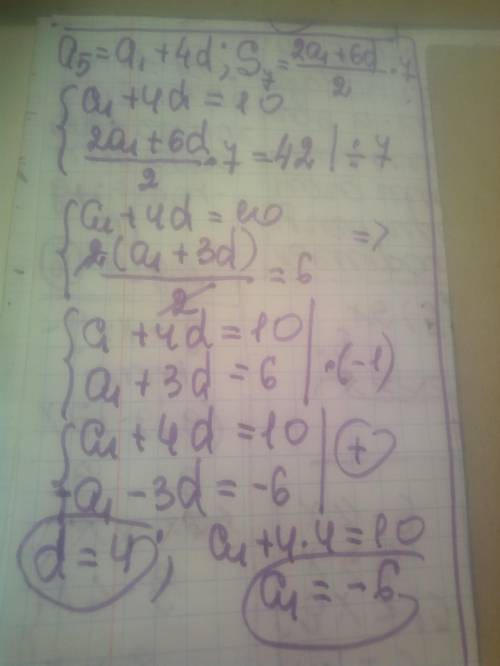 a₅ = a₁ + 4d; S₇ = (2a₁ + 6d)/2 · 7
{ a₁ + 4d = 10
(2a₁ + 6d)/2 · 7 = 42 | ÷ 7
{ a₁ + 4d = 10
2(a₁ + 3d)/2 = 6 =>
{ a₁ + 4d = 10
a₁ + 3d = 6 | · (-1)
{ a₁ + 4d = 10
-a₁ - 3d = -6 | +
d = 4; a₁ + 4·4 = 10
a₁ = -6